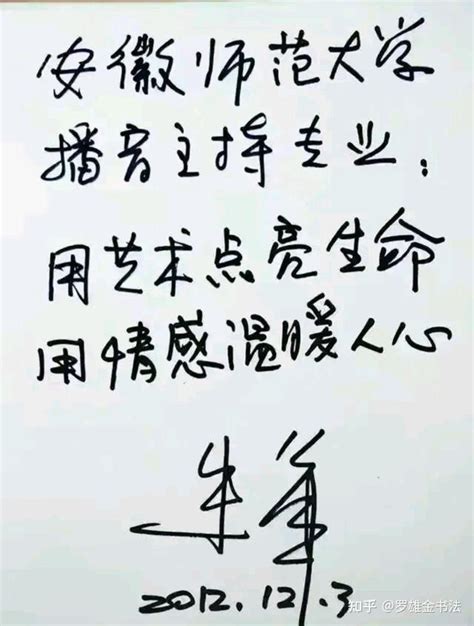 安徽师范大学
播音主持专业：
用艺术点亮生命
用情感温暖人心
朱军
2012.12.3
知乎 @罗雄金书法